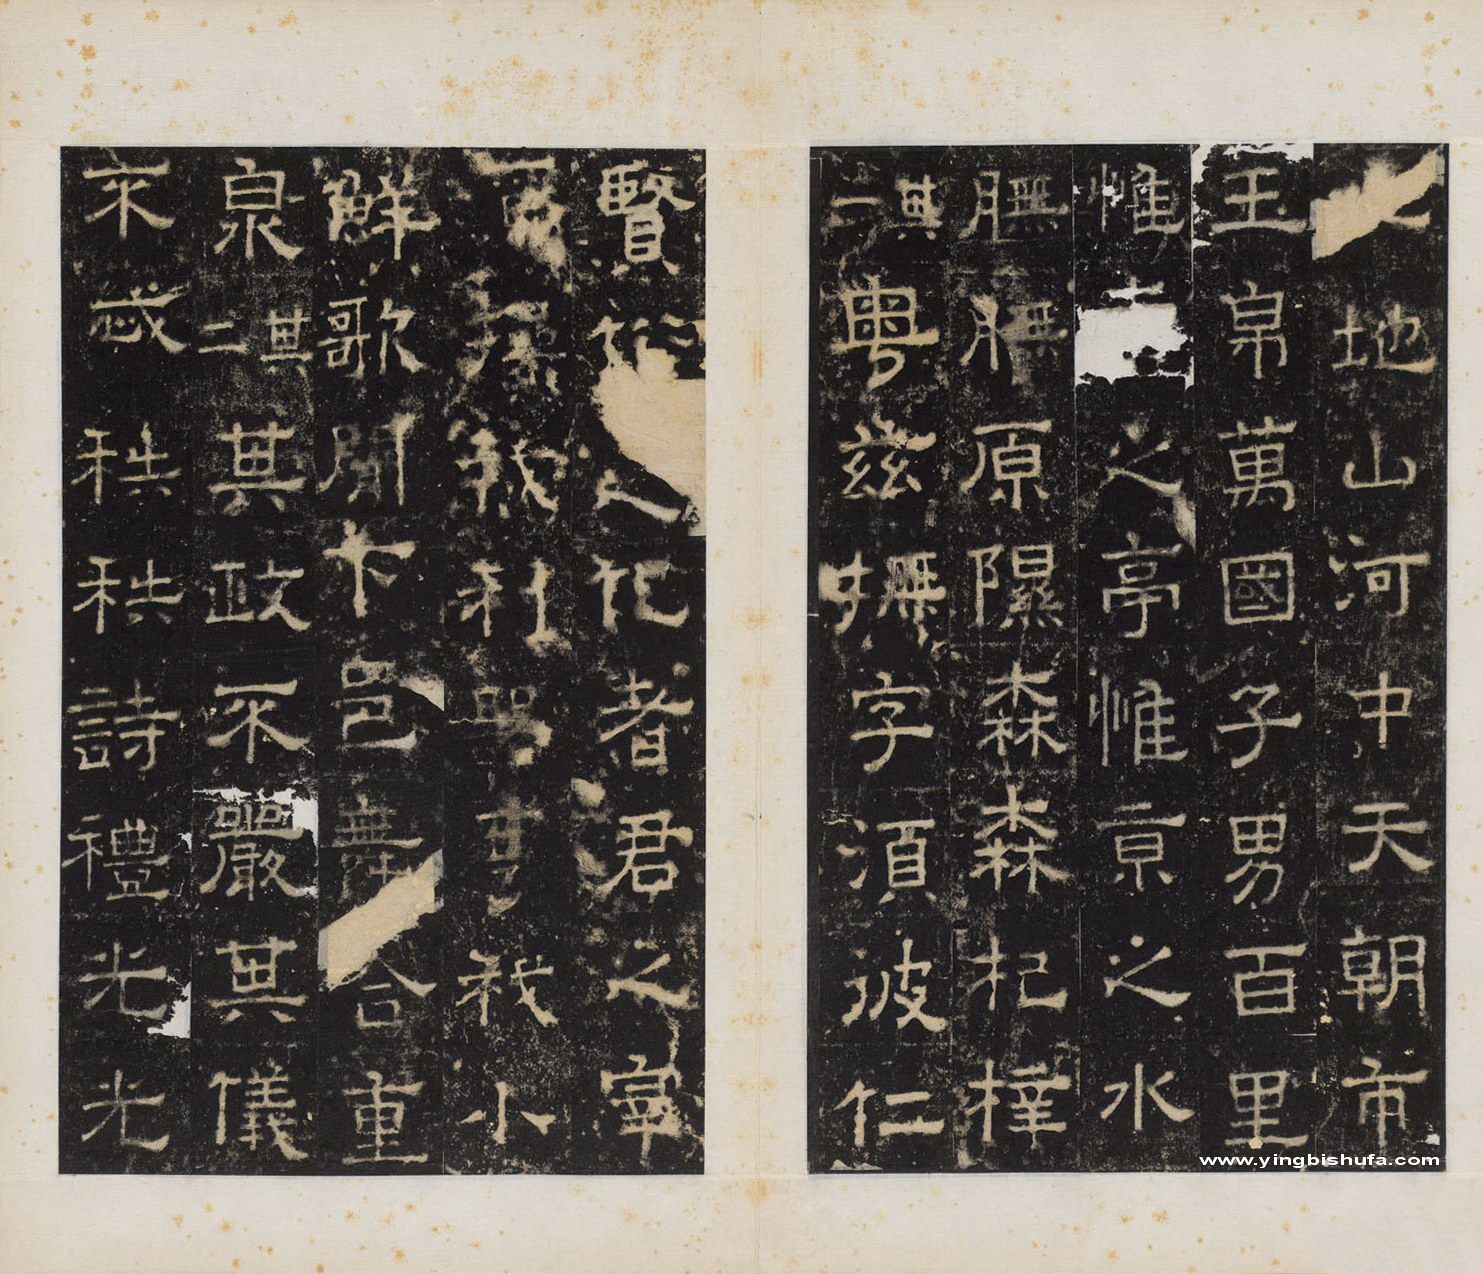 地山河中天朝市
王帛萬國子男百里
惟之亭惟京之水
膴膴原隰森森杞梓
其二粵茲撫字湏彼仁
賢化之化者君之宰
我利器我小
鮮歌聞卞邑舞合重
泉其二其政不嚴其儀
不忒秩秩詩禮光光
www.yingbishufa.com